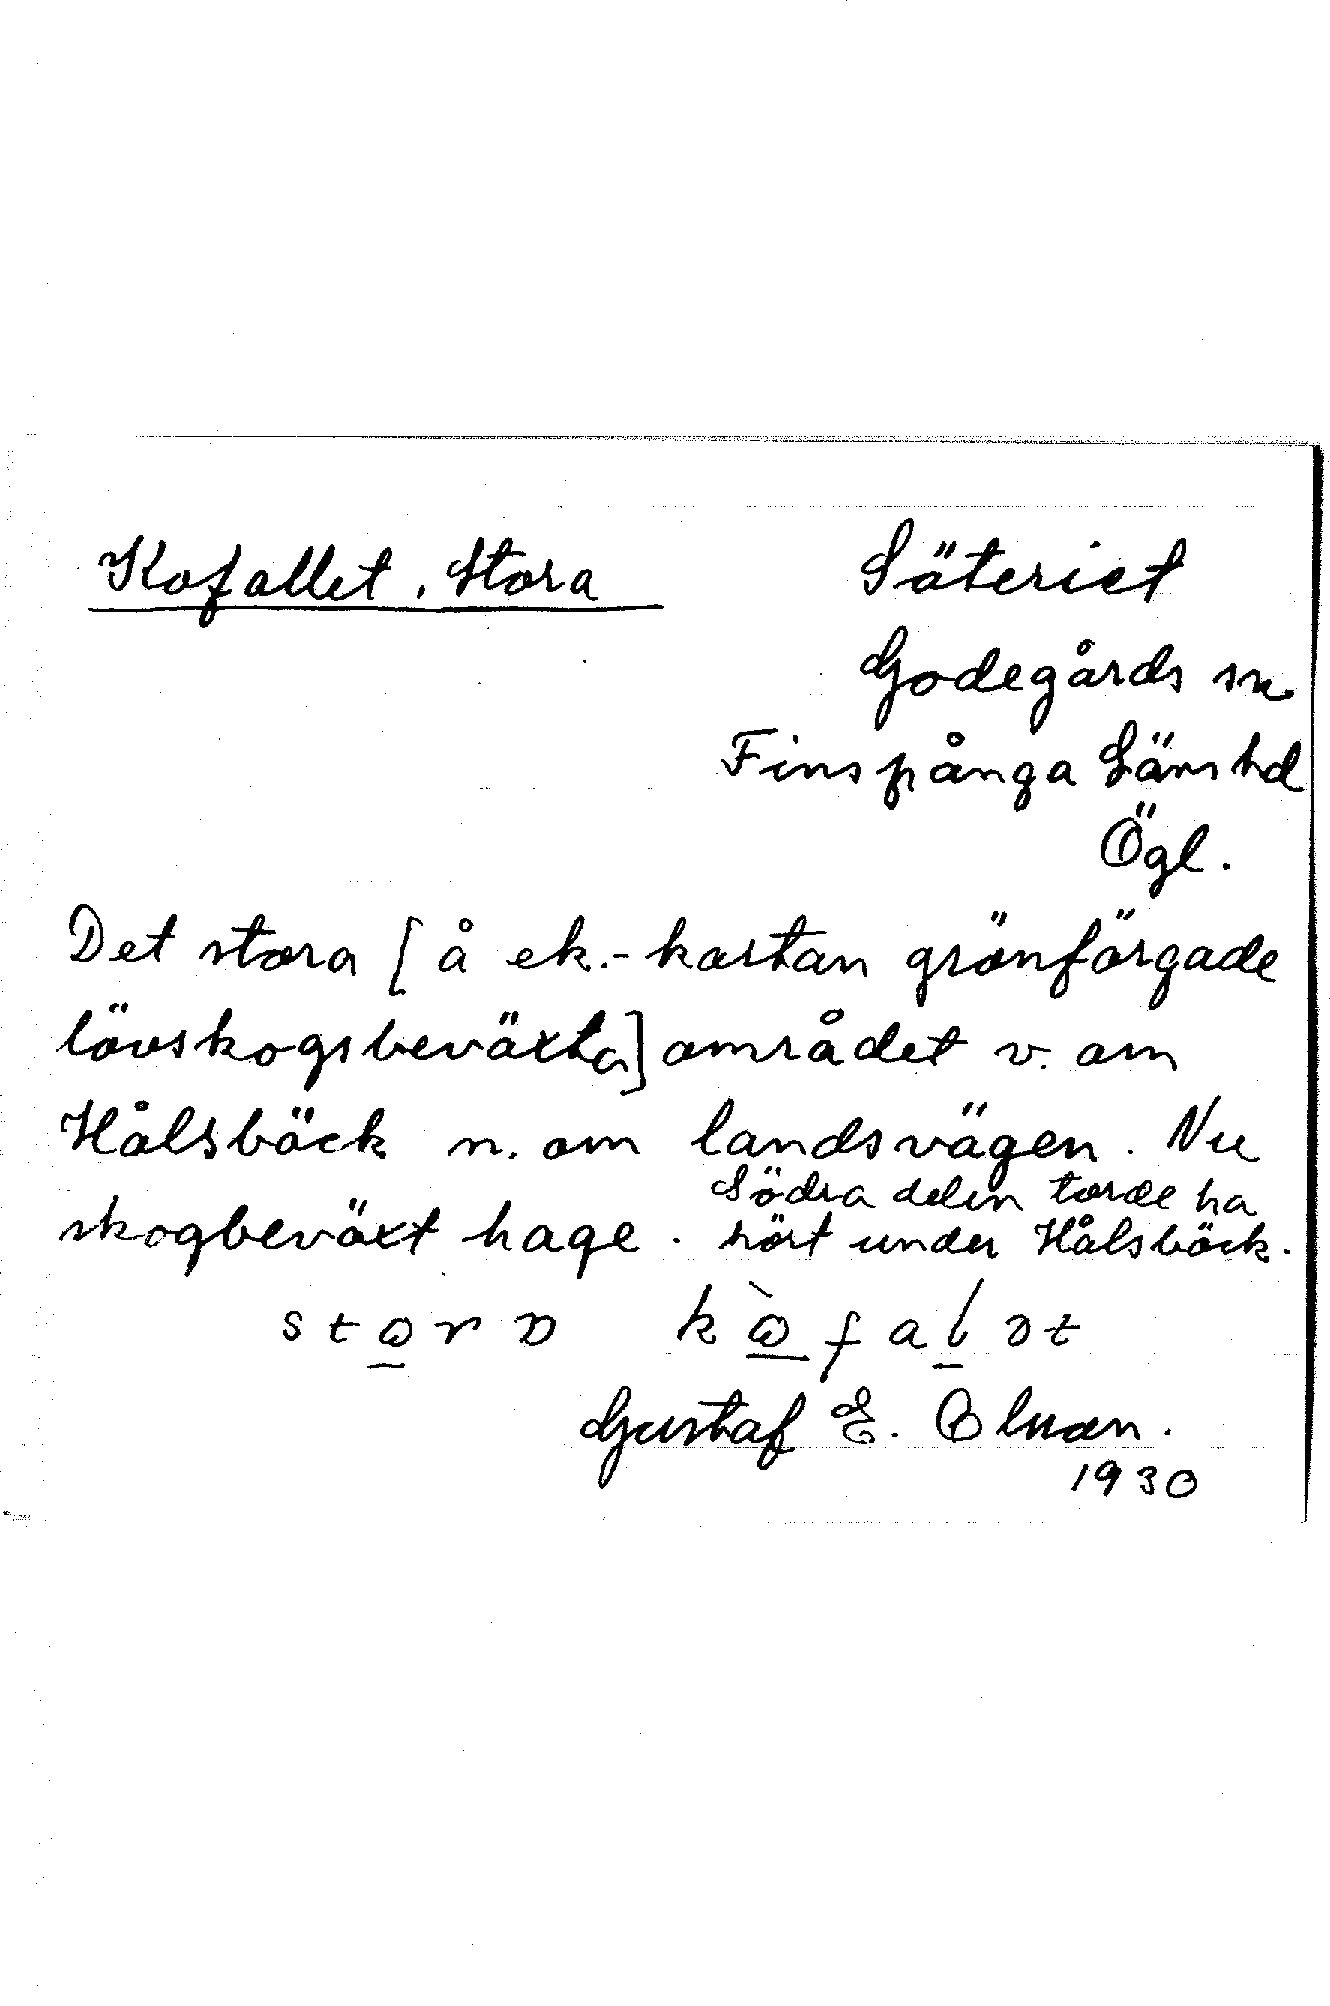 Kofallet, Stora
Säteriet
Godegårds sn
Finspånga Läns hd
Ögl.
Det stora [å ek.-kartan grönfärgade
lövskogsbeväxta] området v. om
Hålsbäck n. om landsvägen. Nu
skogbeväxt hage. Södra delen torde ha
hört under Hålsbäck.
Gustaf E.
1930